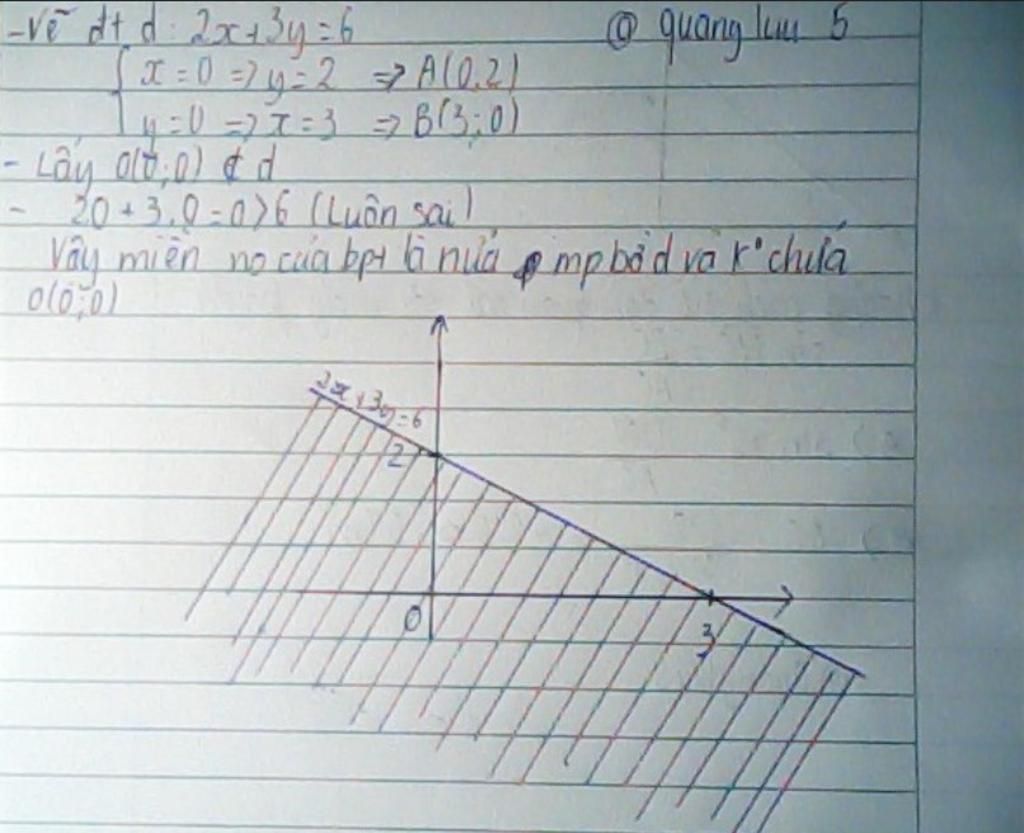 -Vẽ đt d: 2x+3y=6
@ quang lưu 5
x=0 => y=2 => A(0,2)
y=0 => x=3 => B(3;0)
- Lấy O(0;0) ∉ d
- 20 + 3.0 = 0 > 6 (Luôn sai)
Vậy miền no của bpt là nửa mp bờ d và k° chứa
O(0;0)
2x+3y=6
2
0
3